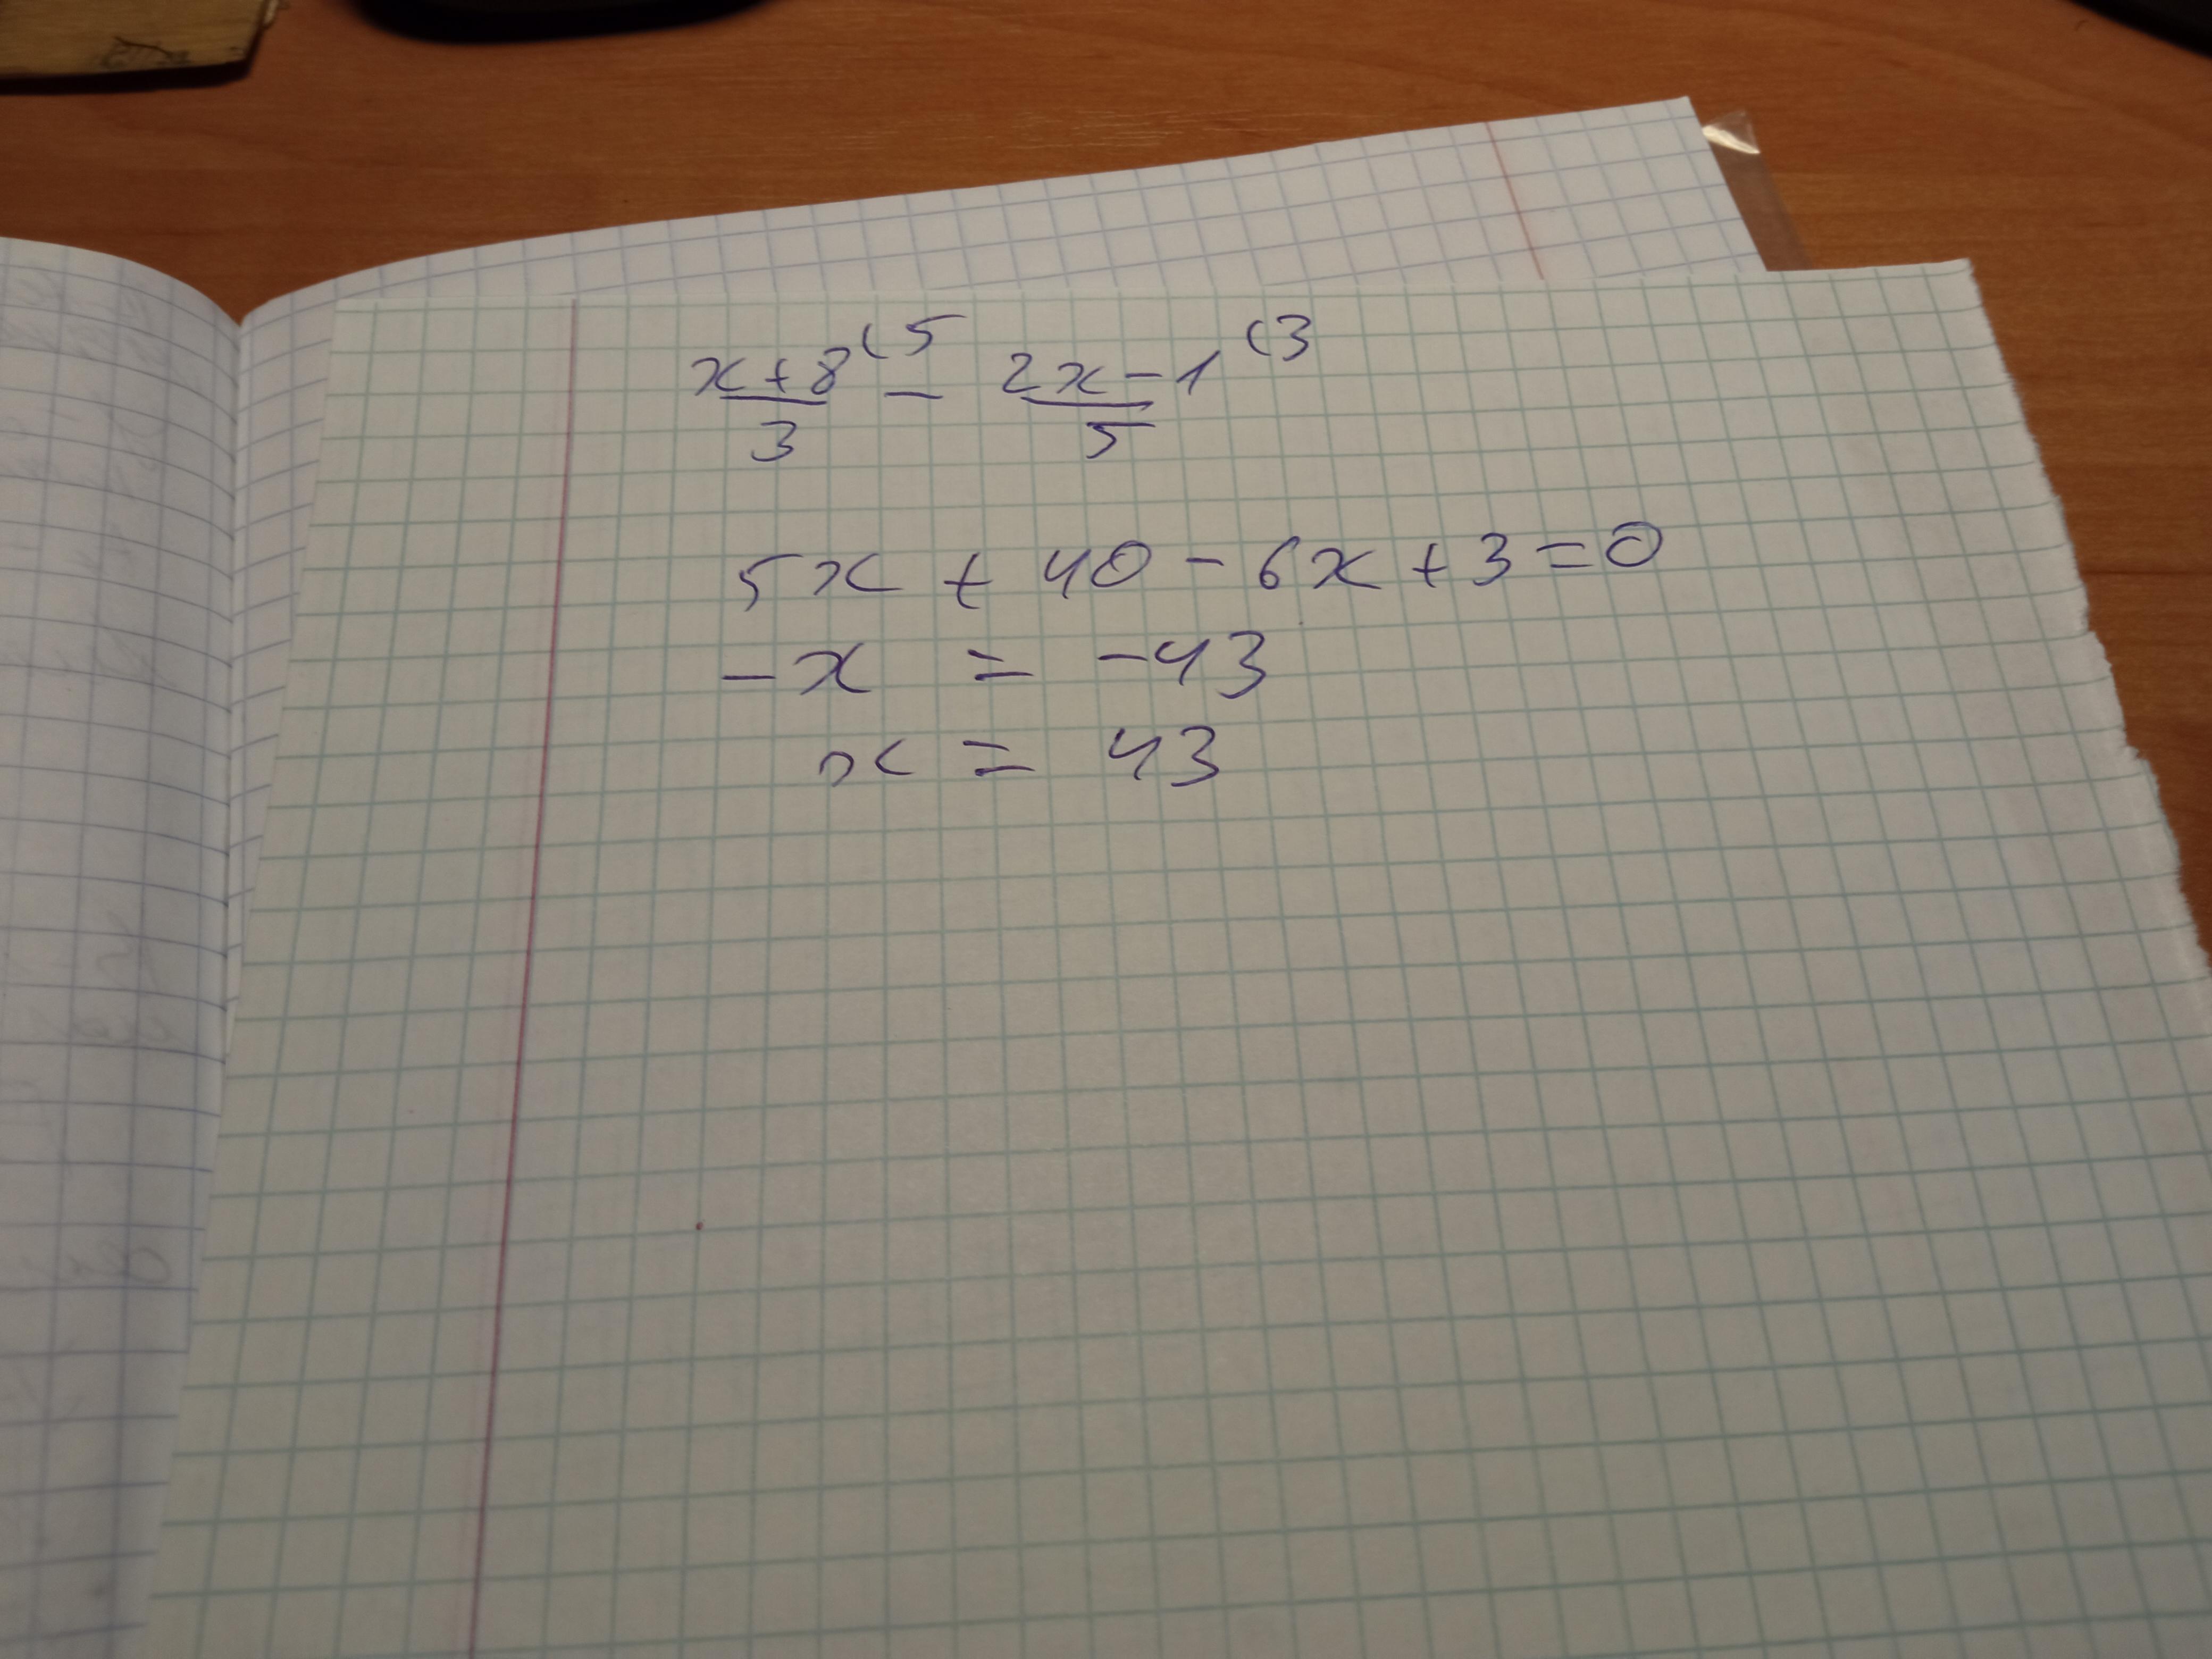 x+8(5 / 3 − 2x−1(3 / 5
5x + 40 − 6x + 3 = 0
−x = −43
x = 43